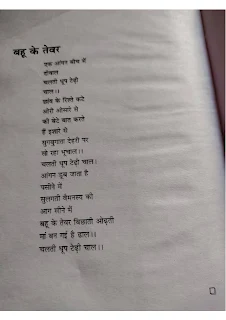 बहू के तेवर
एक आंगन बीच में
दीवाल
चलती धूप टेढ़ी
चाल।।
छांव के रिश्ते कटे
ओरी ओसारे से
की बेटे बात करते
हैं इशारे से
सुगबुगाता देहरी पर
सो रहा भूचाल।।
चलती धूप टेढ़ी चाल।
आंगन डूब जाता है
पसीने में
सुलगती वैमनस्य की
आग सीने में
बहू के तेवर बिछाती ओढ़ती
मां बन गई है ढाल।।
चलती धूप टेढ़ी चाल।।